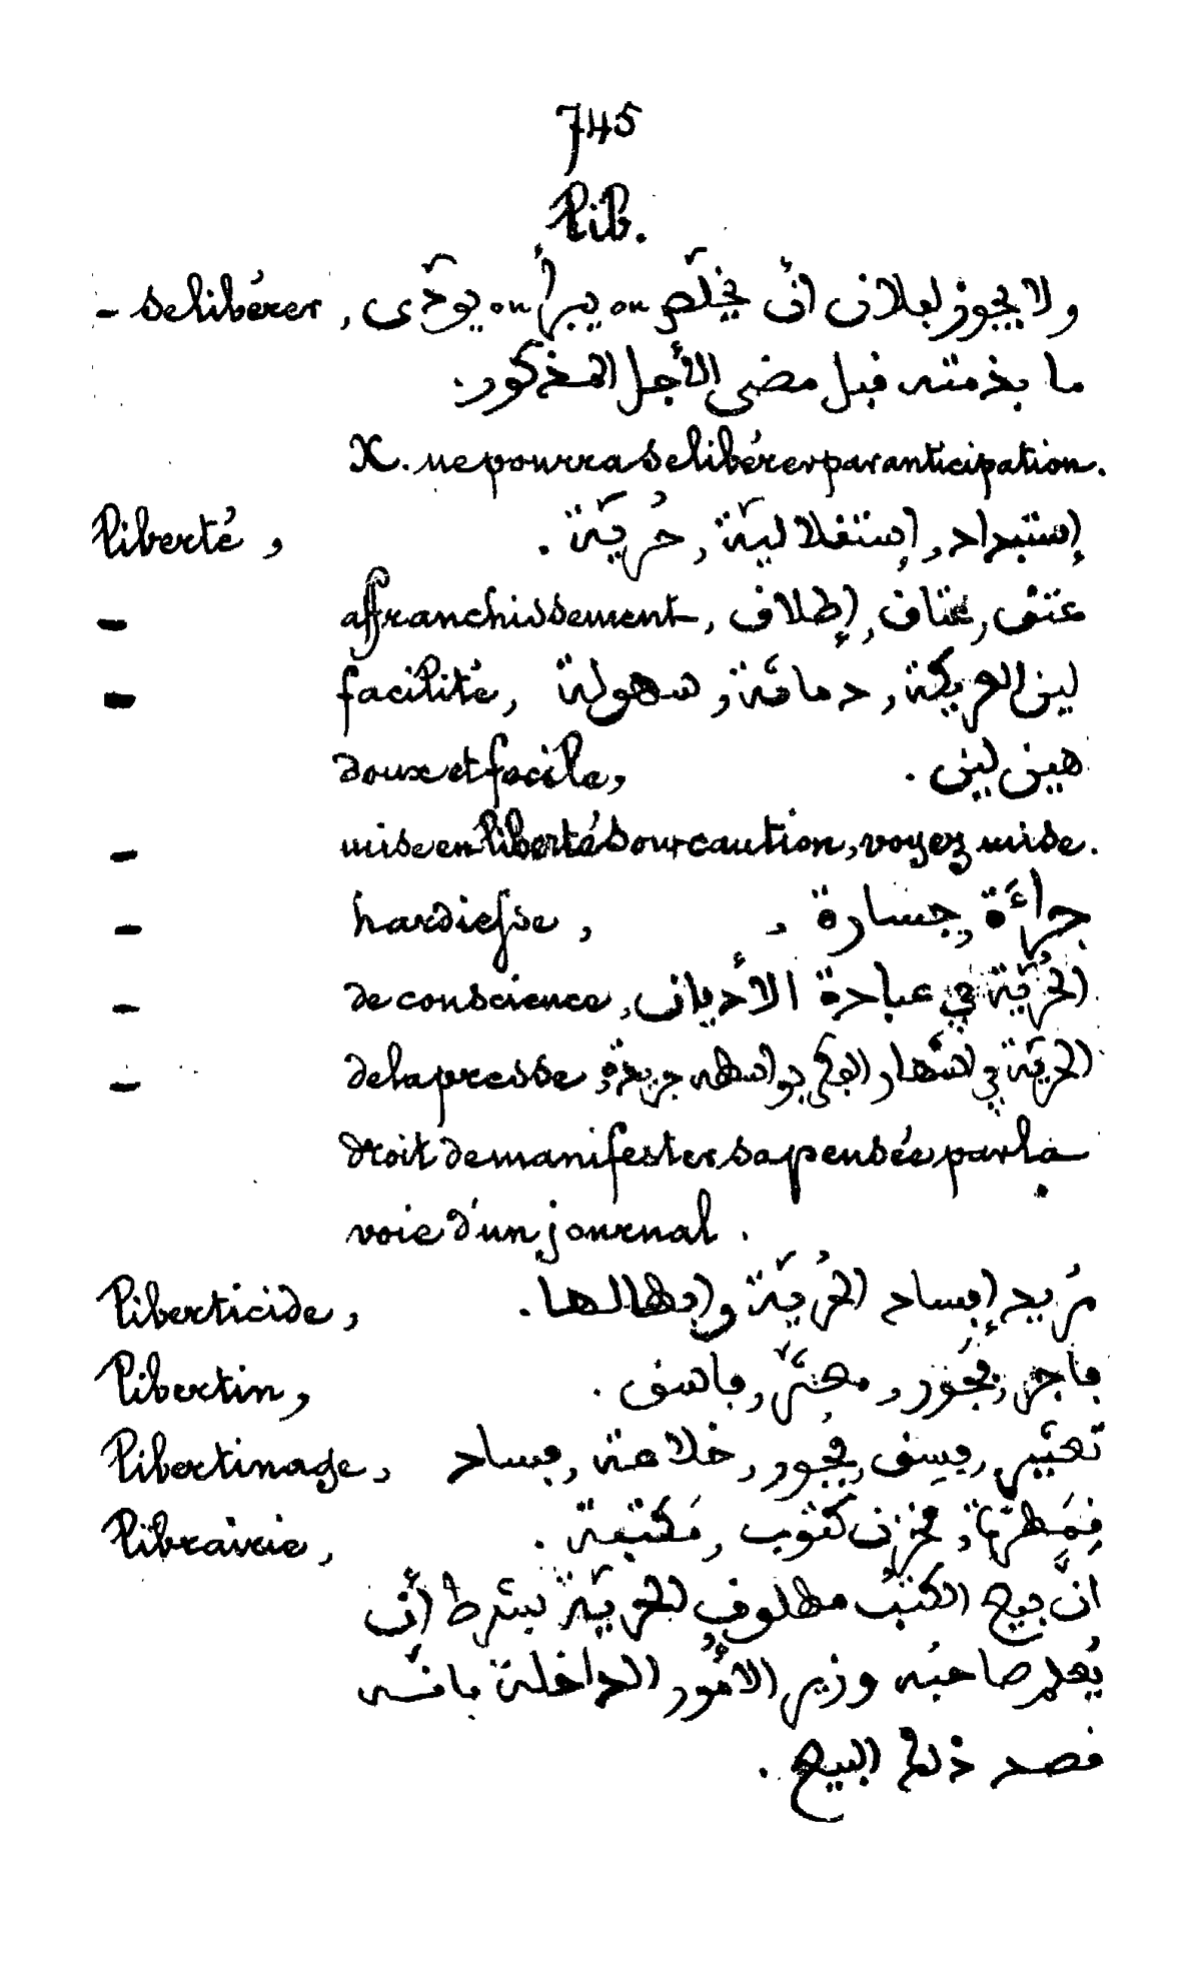 745
Lib.
- se libérer, ولا يجوز لفلان أن يخلّص ou يبرأ ou يودّى
ما بذمته قبل مضى الأجل المذكور.
X. ne pourra se libérer par anticipation.
Liberté, إستبداد, إستقلاليّة, حُريّة.
- affranchissement, عتق, عتاق, إطلاق
- facilité, لين العريكة, دماثة, سهولة
doux et facile, هين لين.
- mise en liberté sour caution, voyez mise.
- hardiesse, جرائة, جسارة
- de conscience, الحُريّة في عبادة الأديان
- de la presse, الحريّة في اشهار بواسطه جريدة,
droit de manifester sa pensée par la
voie d'un journal.
Liberticide, مُريد إفساد الحُريّة وإبطالها.
Libertin, فاجر, فجور, فاسق.
Libertinage, فسق, فجور, خلاعة, فساد
Librairie, قِمَطْر, مخزن كتوب, مَكتبة.
انّ بيع الكتُب مطلوق للحريّة بشرط أن
يُعلم صاحبُه وزير الأمُور الداخلة بانّه
قصد ذلك البيع.